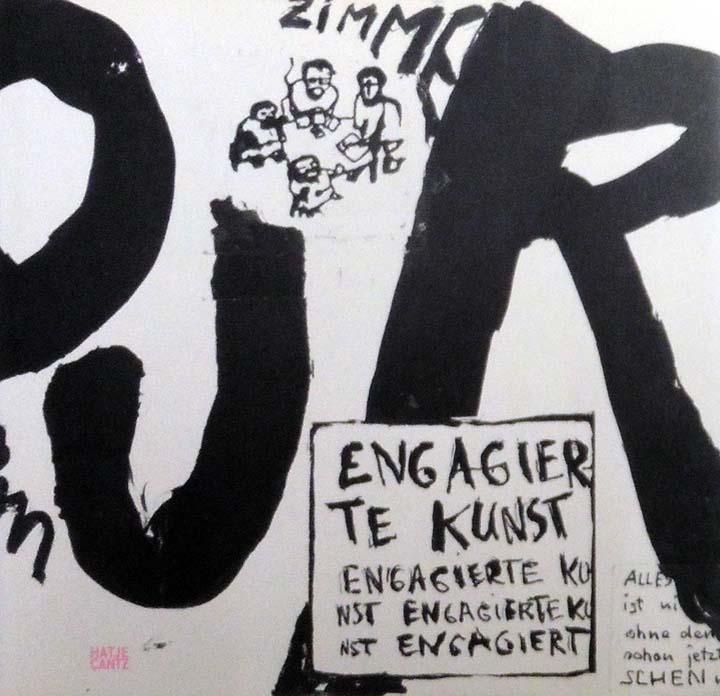 ZIMME
ENGAGIER
TE KUNST
ENGAGIERTE KU
NST ENGAGIERTE KU
NST ENGAGIERT
ALLES
ist ni
ohne den
schon jetzt
SCHEN
HATJE
CANTZ